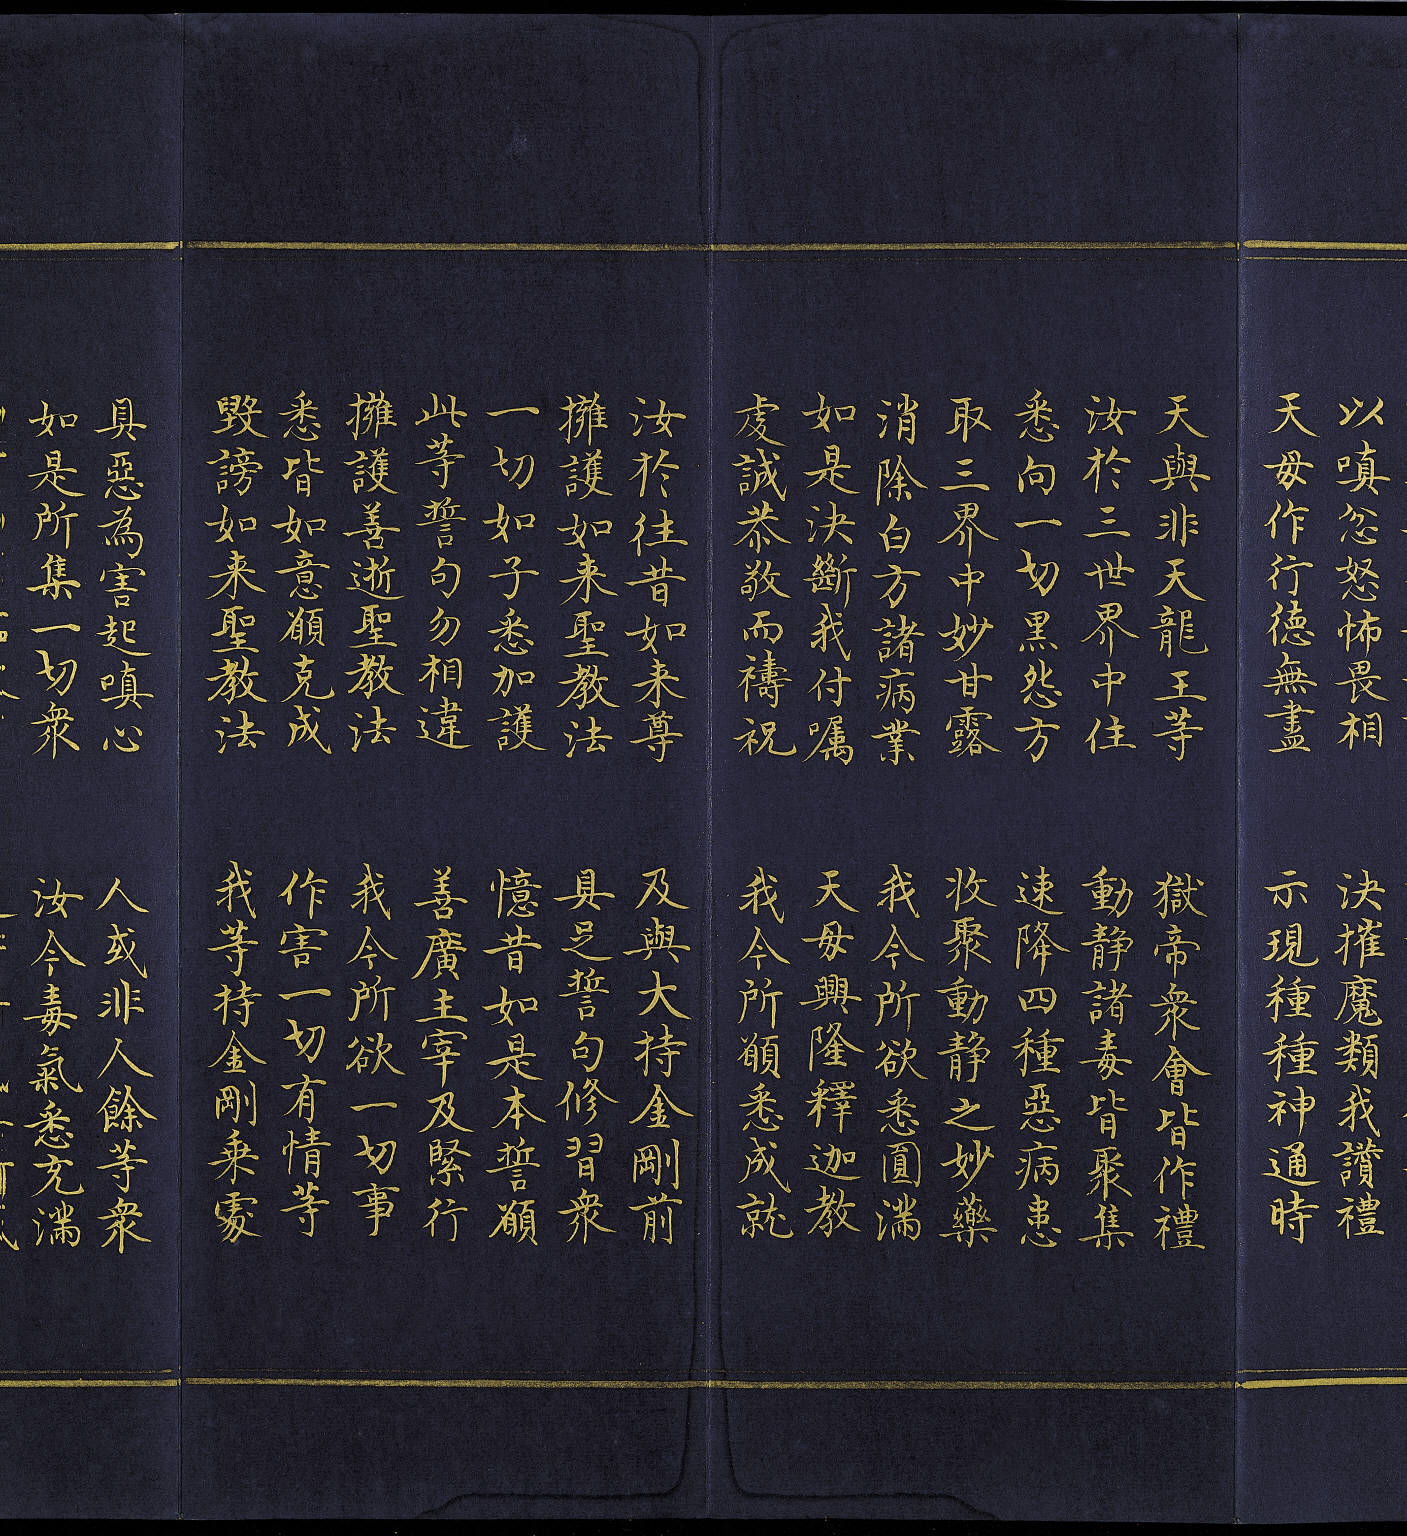 以嗔忿怒怖畏相 決摧魔類我讚禮
天毋作行徳無盡 示現種種神通時
天與非天龍王等 獄帝衆會皆作禮
汝於三世界中住 動静諸毒皆聚集
悉向一切黒怨方 速降四種惡病患
取三界中妙甘露 收聚動静之妙藥
消除白方諸病業 我今所欲悉圓滿
如是決斷我付囑 天毋興隆釋迦教
虔誠恭敬而禱祝 我今所願悉成就
汝於往昔如来尊 及與大持金剛前
擁護如来聖教法 具足誓句修習衆
一切如子悉加護 憶昔如是本誓願
此等誓句勿相違 善廣主宰及緊行
擁護善逝聖教法 我今所欲一切事
悉皆如意願克成 作害一切有情等
毀謗如来聖教法 我等持金剛乗處
具惡為害起嗔心 人或非人餘等衆
如是所集一切衆 汝今毒氣悉充滿